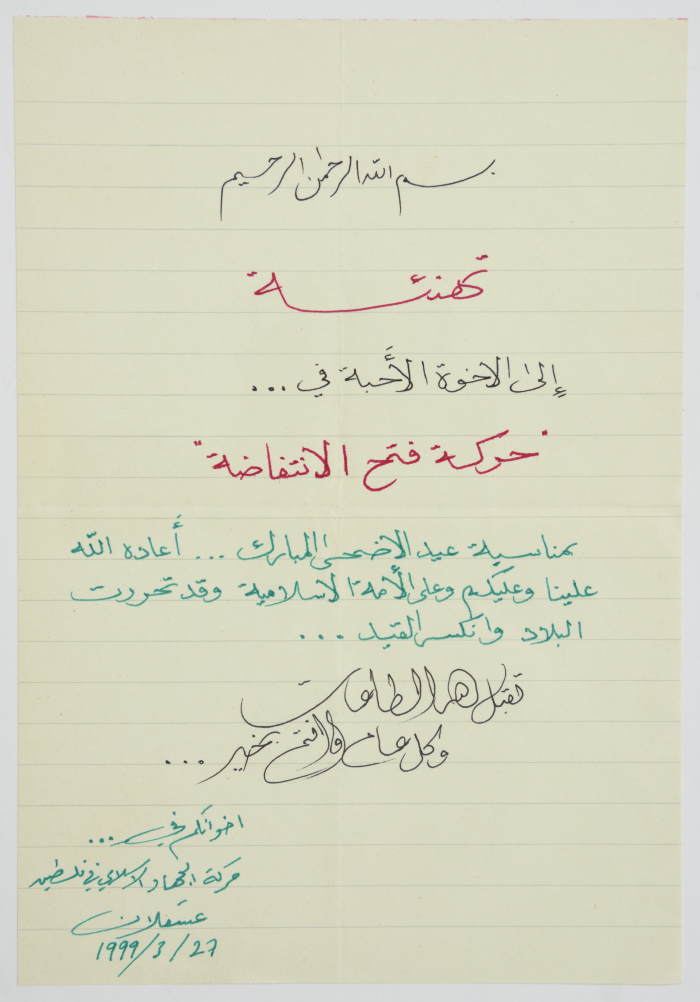 بسم الله الرحمن الرحيم
تهنئة
إلى الاخوة الأحبة في ...
"حركة فتح الانتفاضة"
بمناسبة عيد الاضحى المبارك ... أعاده الله
علينا وعليكم وعلى الأمة الاسلامية وقد تحررت
البلاد وانكسر القيد ...
تقبل الله الطاعات
وكل عام وانتم بخير ...
اخوانكم في ...
حركة الجهاد الاسلامي في فلسطين
عسقلان
1999/3/27